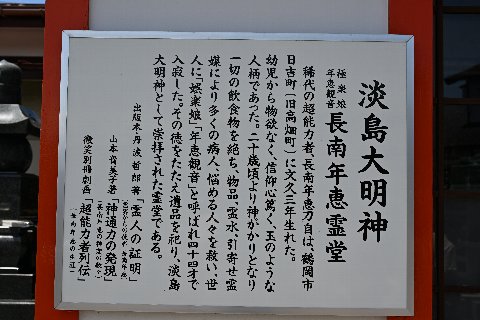 淡島大明神
極楽娘
年恵観音
長南年恵霊堂
稀代の超能力者、長南年恵刀自は、鶴岡市
日吉町(旧高畑町)に文久三年生れた。
幼児から物欲なく、信仰心篤く、玉のような
人柄であった。二十歳頃より神がかりとなり
一切の飲食物を絶ち、物品、霊水、引寄せ霊
媒により多くの病人、悩める人々を救い、世
人に「極楽娘」「年恵観音」と呼ばれ四十四才で
入寂した。その徳をたたえ遺品を祀り、淡島
大明神として崇拝された霊堂である。
出版本・丹波哲郎著「霊人の証明」
山本貴美子著「神通力の発現」
微笑別冊劇画「超能力者列伝」